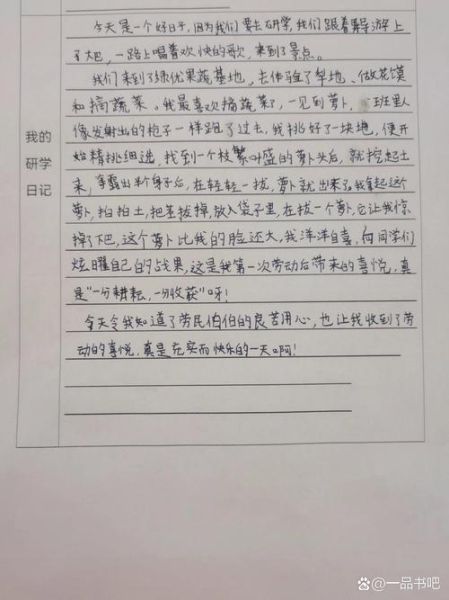 今天是一个好日子，因为我们要去研学，我们跟着导游上
了大巴，一路上唱着欢快的歌，来到了景点。
我们来到了绿优果蔬基地，去体验了犁地、做花馍
和摘蔬菜。我最喜欢摘蔬菜了，一见到萝卜，班里人
像发射出的枪子一样跑了过去，我挑好了一块地，便开
始精挑细选，找到一个枝繁叶盛的萝卜头后，就挖起土
来，等露出半个身子后，在轻轻一拔，萝卜就出来了。我拿起这个
萝卜，拍拍土，把茎拔掉，放入袋子里，在拔一个萝卜，它让我惊
掉了下巴，这个萝卜比我的脸还大，我洋洋自喜，向同学们
炫耀自己的战果，这是我第一次劳动后带来的喜悦，真
是“一分耕耘，一分收获”呀！
今天令我知道了劳民伯伯的良苦用心，也让我收到了劳
动的喜悦，真是充实而快乐的一天啊！
我的
研学
日记
@一品书吧